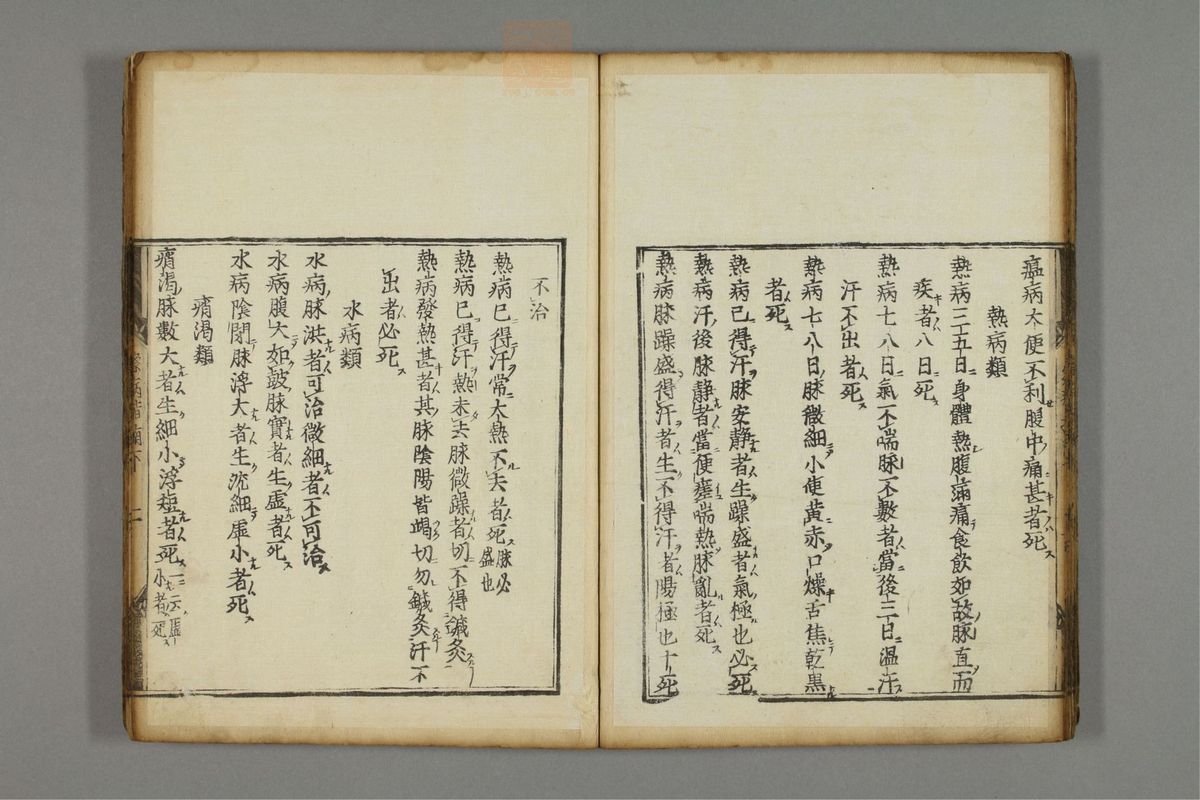 瘟病大便不利腹中痛甚者死
熱病類
熱病三五日身體熱腹滿痛食飲如故脉直而
疾者八日死
熱病七八日氣不喘脉不數者當後三日温汗
汗不出者死
熱病七八日脉微細小便黄赤口燥舌焦乾黒
者死
熱病已得汗脉安靜者生躁盛者氣極也必死
熱病汗後脉靜者當便喘熱脉亂者死
熱病脉躁盛得汗者生不得汗者陽極也十死
不治
熱病已得汗常大熱不去者死脉必盛也
熱病已得汗熱未去脉微躁者切不得鍼灸
熱病發熱甚者其脉陰陽皆竭切勿鍼灸汗不
出者必死
水病類
水病脉洪者可治微細者不可治
水病腹大如皷脉實者生虚者死
水病陰閉脉浮大者生沈細虚小者死
痟渇類
痟渇脉數大者生細小浮短者死一ニ云虚小者死